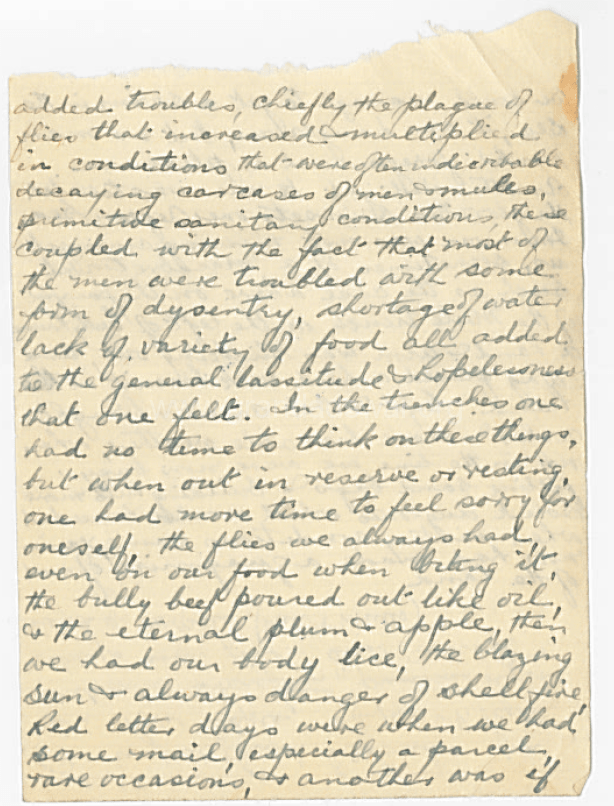 added troubles, chiefly the plague of
flies that increased & multiplied
in conditions that were often indiscribable
decaying carcases of men & mules,
primitive sanitary conditions, these
coupled with the fact that most of
the men were troubled with some
form of dysentry, shortage of water
lack of variety of food all added
to the general lassitude & hopelessness
that one felt. In the trenches one
had no time to think on these things,
but when out in reserve or resting,
one had more time to feel sorry for
oneself, the flies we always had,
even on our food when biting it,
the bully beef poured out like oil,
& the eternal plum & apple, then
we had our body lice, the blazing
sun & always danger of shell fire,
Red letter days were when we had
some mail, especially a parcel,
rare occasions, & another was if